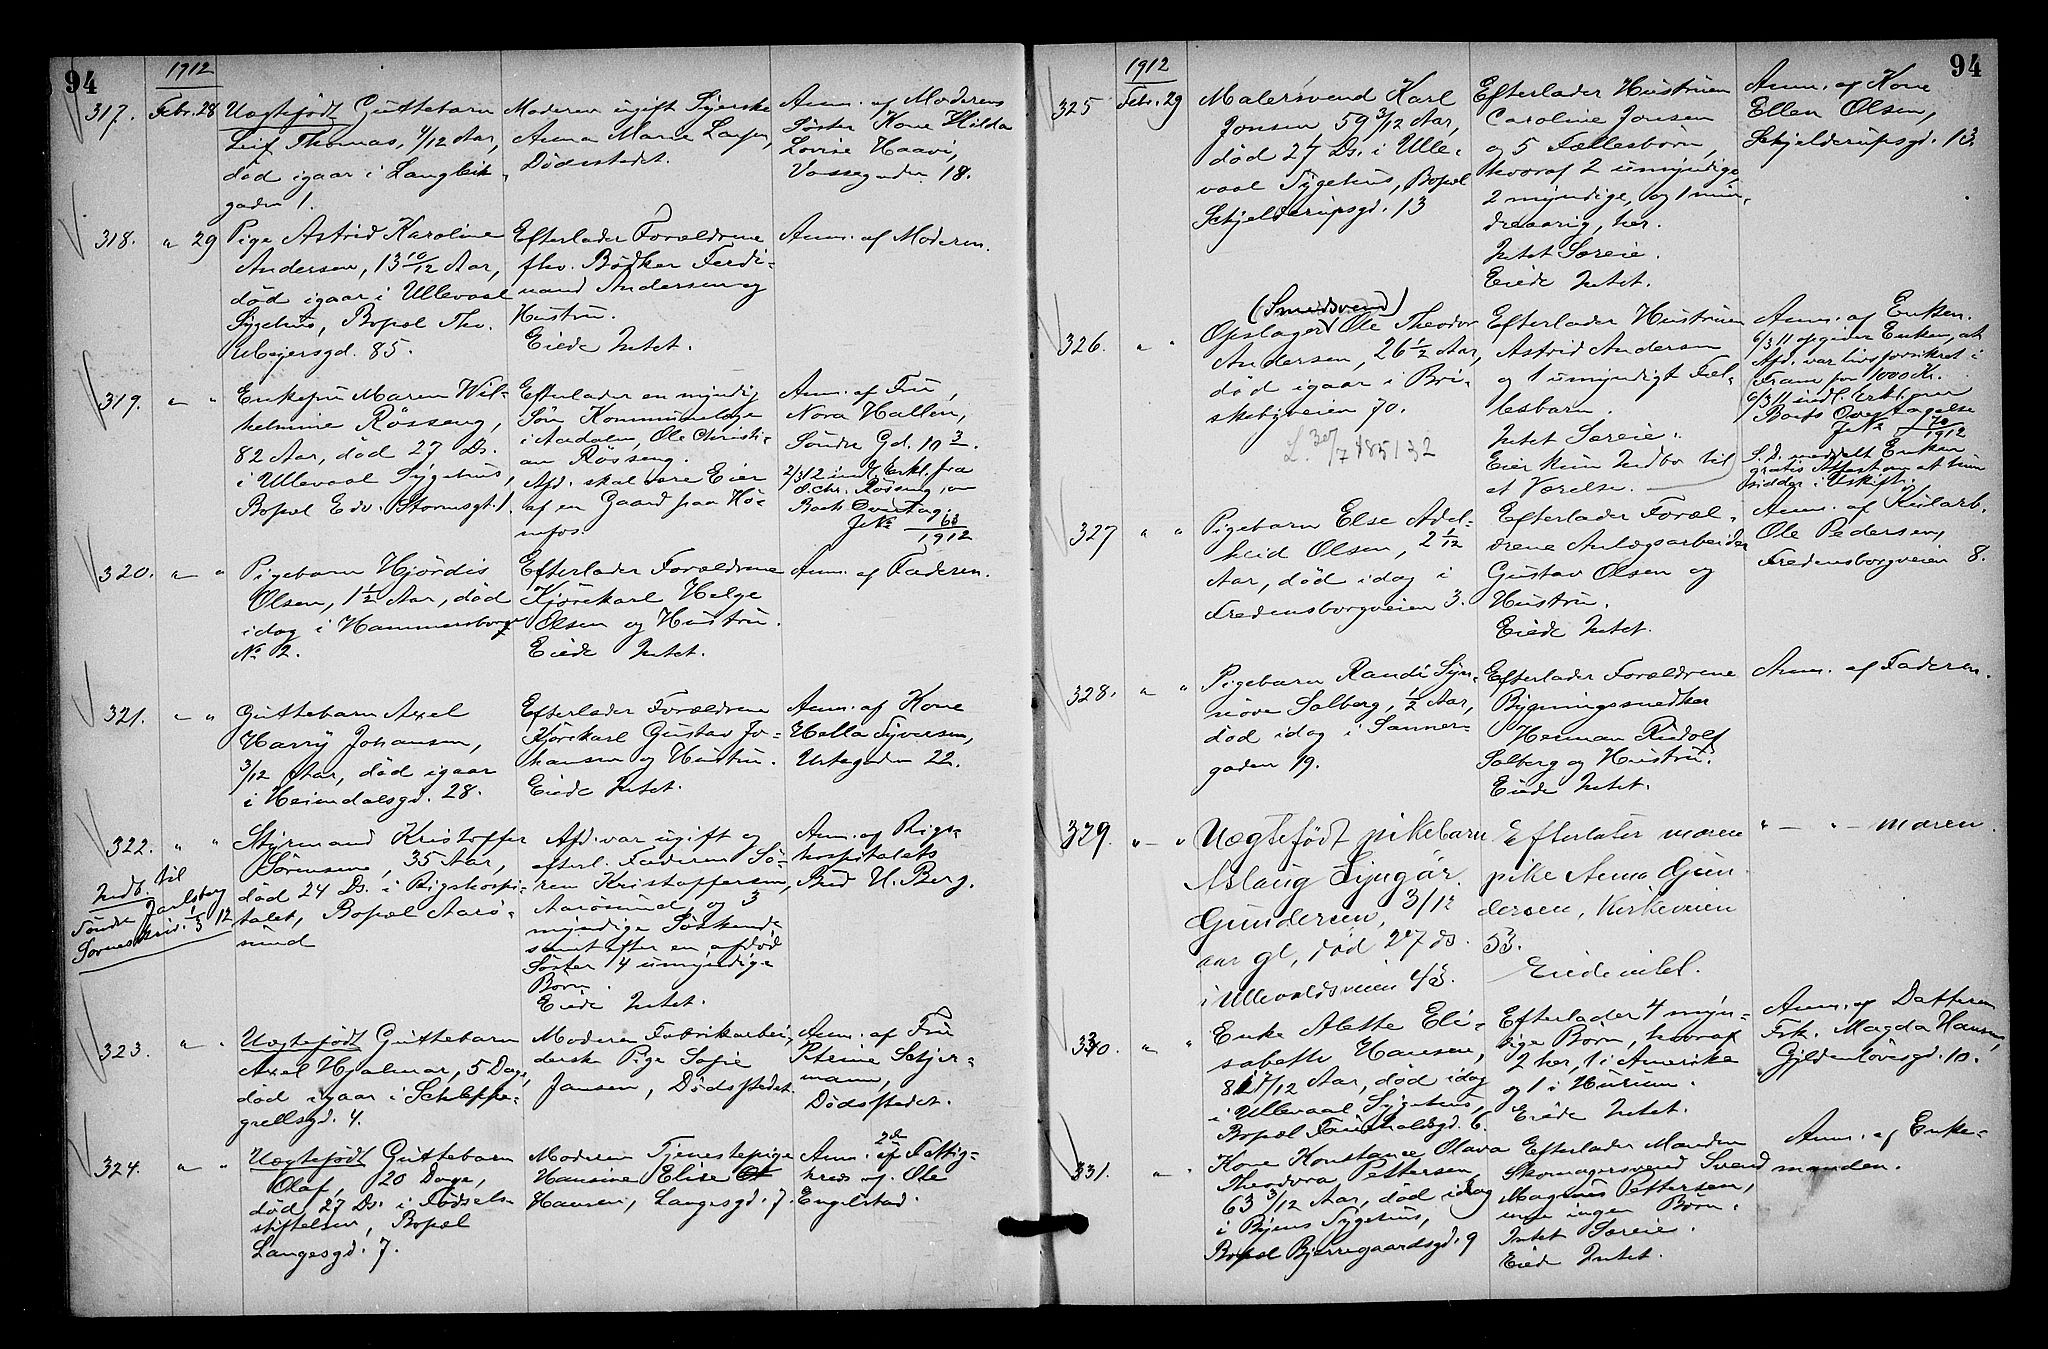 94
1912
317. Febr. 28 Uægtefødt Guttebarn
Leif Thomas, 4/12 Aar,
død igaar i Langbek
gaden 1.
Moderen ugift Syerske
Anna Marie
Dødsstedet.
Anm. af Moderens
Søster Kone Hilda
Lovise Haavi,
Vossegaden 18.
318. " 29 Pige Astrid Karoline
Andersen, 13 10/12 Aar,
død igaar i Ullevaal
Sygehus, Bopæl Thv.
Meyersgd. 85.
Efterlader Forældrene
fhv. Bödker Ferdi-
nand Andersen og
Hustru.
Eiede Intet.
Anm. af Moderen.
319. " " Enkefru Maren Wil-
helmine Røsseng,
82 Aar, død 27 Ds.
i Ullevaal Sygehus,
Bopæl Edv. Stormsgt. 1.
Efterlader en myndig
Søn Kommunelæge
i Aadalen, Ole Christi-
an Røsseng.
Afd. skal være Eier
af en Gaard paa Hö-
nefos.
Anm. af Fru
Nora Hallen,
Søndre Gd. 10 3.
2/3 12 indk. Erkl. fra
O. Chr. Røsseng, om
Boets Overtag.
JN° 63/1912
320. " " Pigebarn Hjördis
Olsen, 1 1/2 Aar, død
idag i Hammersborg
N° 2.
Efterlader Forældrene
Kjørekarl Helge
Olsen og Hustru.
Eiede Intet.
Anm. af Faderen.
321. " " Guttebarn Axel
Harry Johansen,
3/12 Aar, død igaar
i Heimdalsgd. 28.
Efterlader Forældrene
Kjørekarl Gustav Jo-
hansen og Hustru.
Eiede Intet.
Anm. af Kone
Hella Syversen,
Urtegaden 22.
322. " " Styrmand Kristoffer
Sörensen, 35 Aar,
død 24 Ds. i Rigshospi-
talet, Bopæl Aarö-
sund
Indb. til
Søndre Jarlsberg
Sorenskriv. 1/3 12
Afd. var ugift og
efterl. Faderen Sö-
ren Kristoffersen,
Aarösund, og 3
myndige Søskende
samt efter en afdød
Søster 4 umyndige
Børn.
Eiede Intet.
Anm. af Rigs-
hospitalets
Bud H. Berg.
323. " " Uægtefødt Guttebarn
Axel Hjalmar, 5 Dage,
død igaar i Schleppe-
grellsgd. 4.
Moderen Fabrikarbei-
derske Pige Sofie
Jansen, Dødsstedet.
Anm. af Fru
Petrine Schjer-
mann,
Dødsstedet.
324. " " Uægtefødt Guttebarn
Olaf, 20 Dage,
død 27 Ds. i Fødsels
stiftelsen, Bopæl
Langesgd. 7.
Moderen Tjenestepige
Hansine Elise
Hansen, Langesgd. 7.
Anm. af 2den Fattig-
kreds v. Ole
Engelstad.
94
1912
325 Febr. 29 Malersvend Karl
Jonsen, 59 3/12 Aar,
død 27 Ds. i Ulle-
vaal Sygehus, Bopæl
Schjelderupsgd. 13
Efterlader Hustruen
Caroline Jonsen
og 5 Fællesbörn,
hvoraf 2 umyndige,
2 myndige, og 1 min-
dreaarig, her.
Intet Særeie.
Eiede Intet.
Anm. af Kone
Ellen Olsen,
Schjelderupsgd. 13
326. " " (Smedsvend)
Opslager Ole Theodor
Andersen, 26 1/2 Aar,
død igaar i Bri-
skebyveien 70.
L. 30/7 485132
Efterlader Hustruen
Astrid Andersen
og 1 umyndigt Fæl-
lesbarn.
Intet Særeie.
Eier kun Indbo til
et Værelse.
Anm. af Enken.
6/3 11 opgiver Enken, at
Afd. var livsforsikret i
Fram for 1000 Kr.
6/3 11 indl. Erkl. om
Boets Overtagelse
JN° 70/1912
S. D. meddelt Enken
gratis Attest om at hun
sidder i Uskift.
327 " " Pigebarn Else Adel-
heid Olsen, 2 1/12
Aar, død idag i
Fredensborgveien 3.
Efterlader Foræl-
drene Anlægsarbeider
Gustav Olsen og
Hustru.
Eiede Intet.
Anm. af Kularb.
Ole Pedersen,
Fredensborgveien 8.
328. " " Pigebarn Randi Syn-
növe Solberg, 1/2 Aar,
død idag i Sanner-
gaden 19.
Efterlader Forældrene
Bygningssnedker
Herman Rudolf
Solberg og Hustru.
Eiede Intet.
Anm. af Faderen.
329. " " Uægtefödt pikebarn
Aslaug Syngör
Gundersen, 3/12
aar gl, død 27 ds.
i Ullevoldsveien 43.
Efterlater moren
pike Anna Gun-
dersen, Kirkeveien
53.
Eiede intet.
" — " — moren.
330. " " Enke Alette Eli-
sabeth Hansen,
81 7/12 Aar, død idag
i Ullevaal Sygehus,
Bopæl Fauchaldsgd. 6.
Efterlader 4 myn-
dige Börn, hvoraf
2 her, 1 i Amerika
og 1 i Hurum.
Eiede Intet.
Anm. af Datteren
Frk. Magda Hansen,
Gyldenløvesgd. 10.
331. " " Kone Konstance Olava
Theodora Pettersen,
63 3/12 Aar, død idag
i Byens Sygehus,
Bopæl Bjerregaardsgd. 9
Efterlader Manden
Skomagersvend Svend
Magnus Pettersen,
men ingen Börn.
Intet Særeie.
Eiede Intet.
Anm. af Enke-
manden.